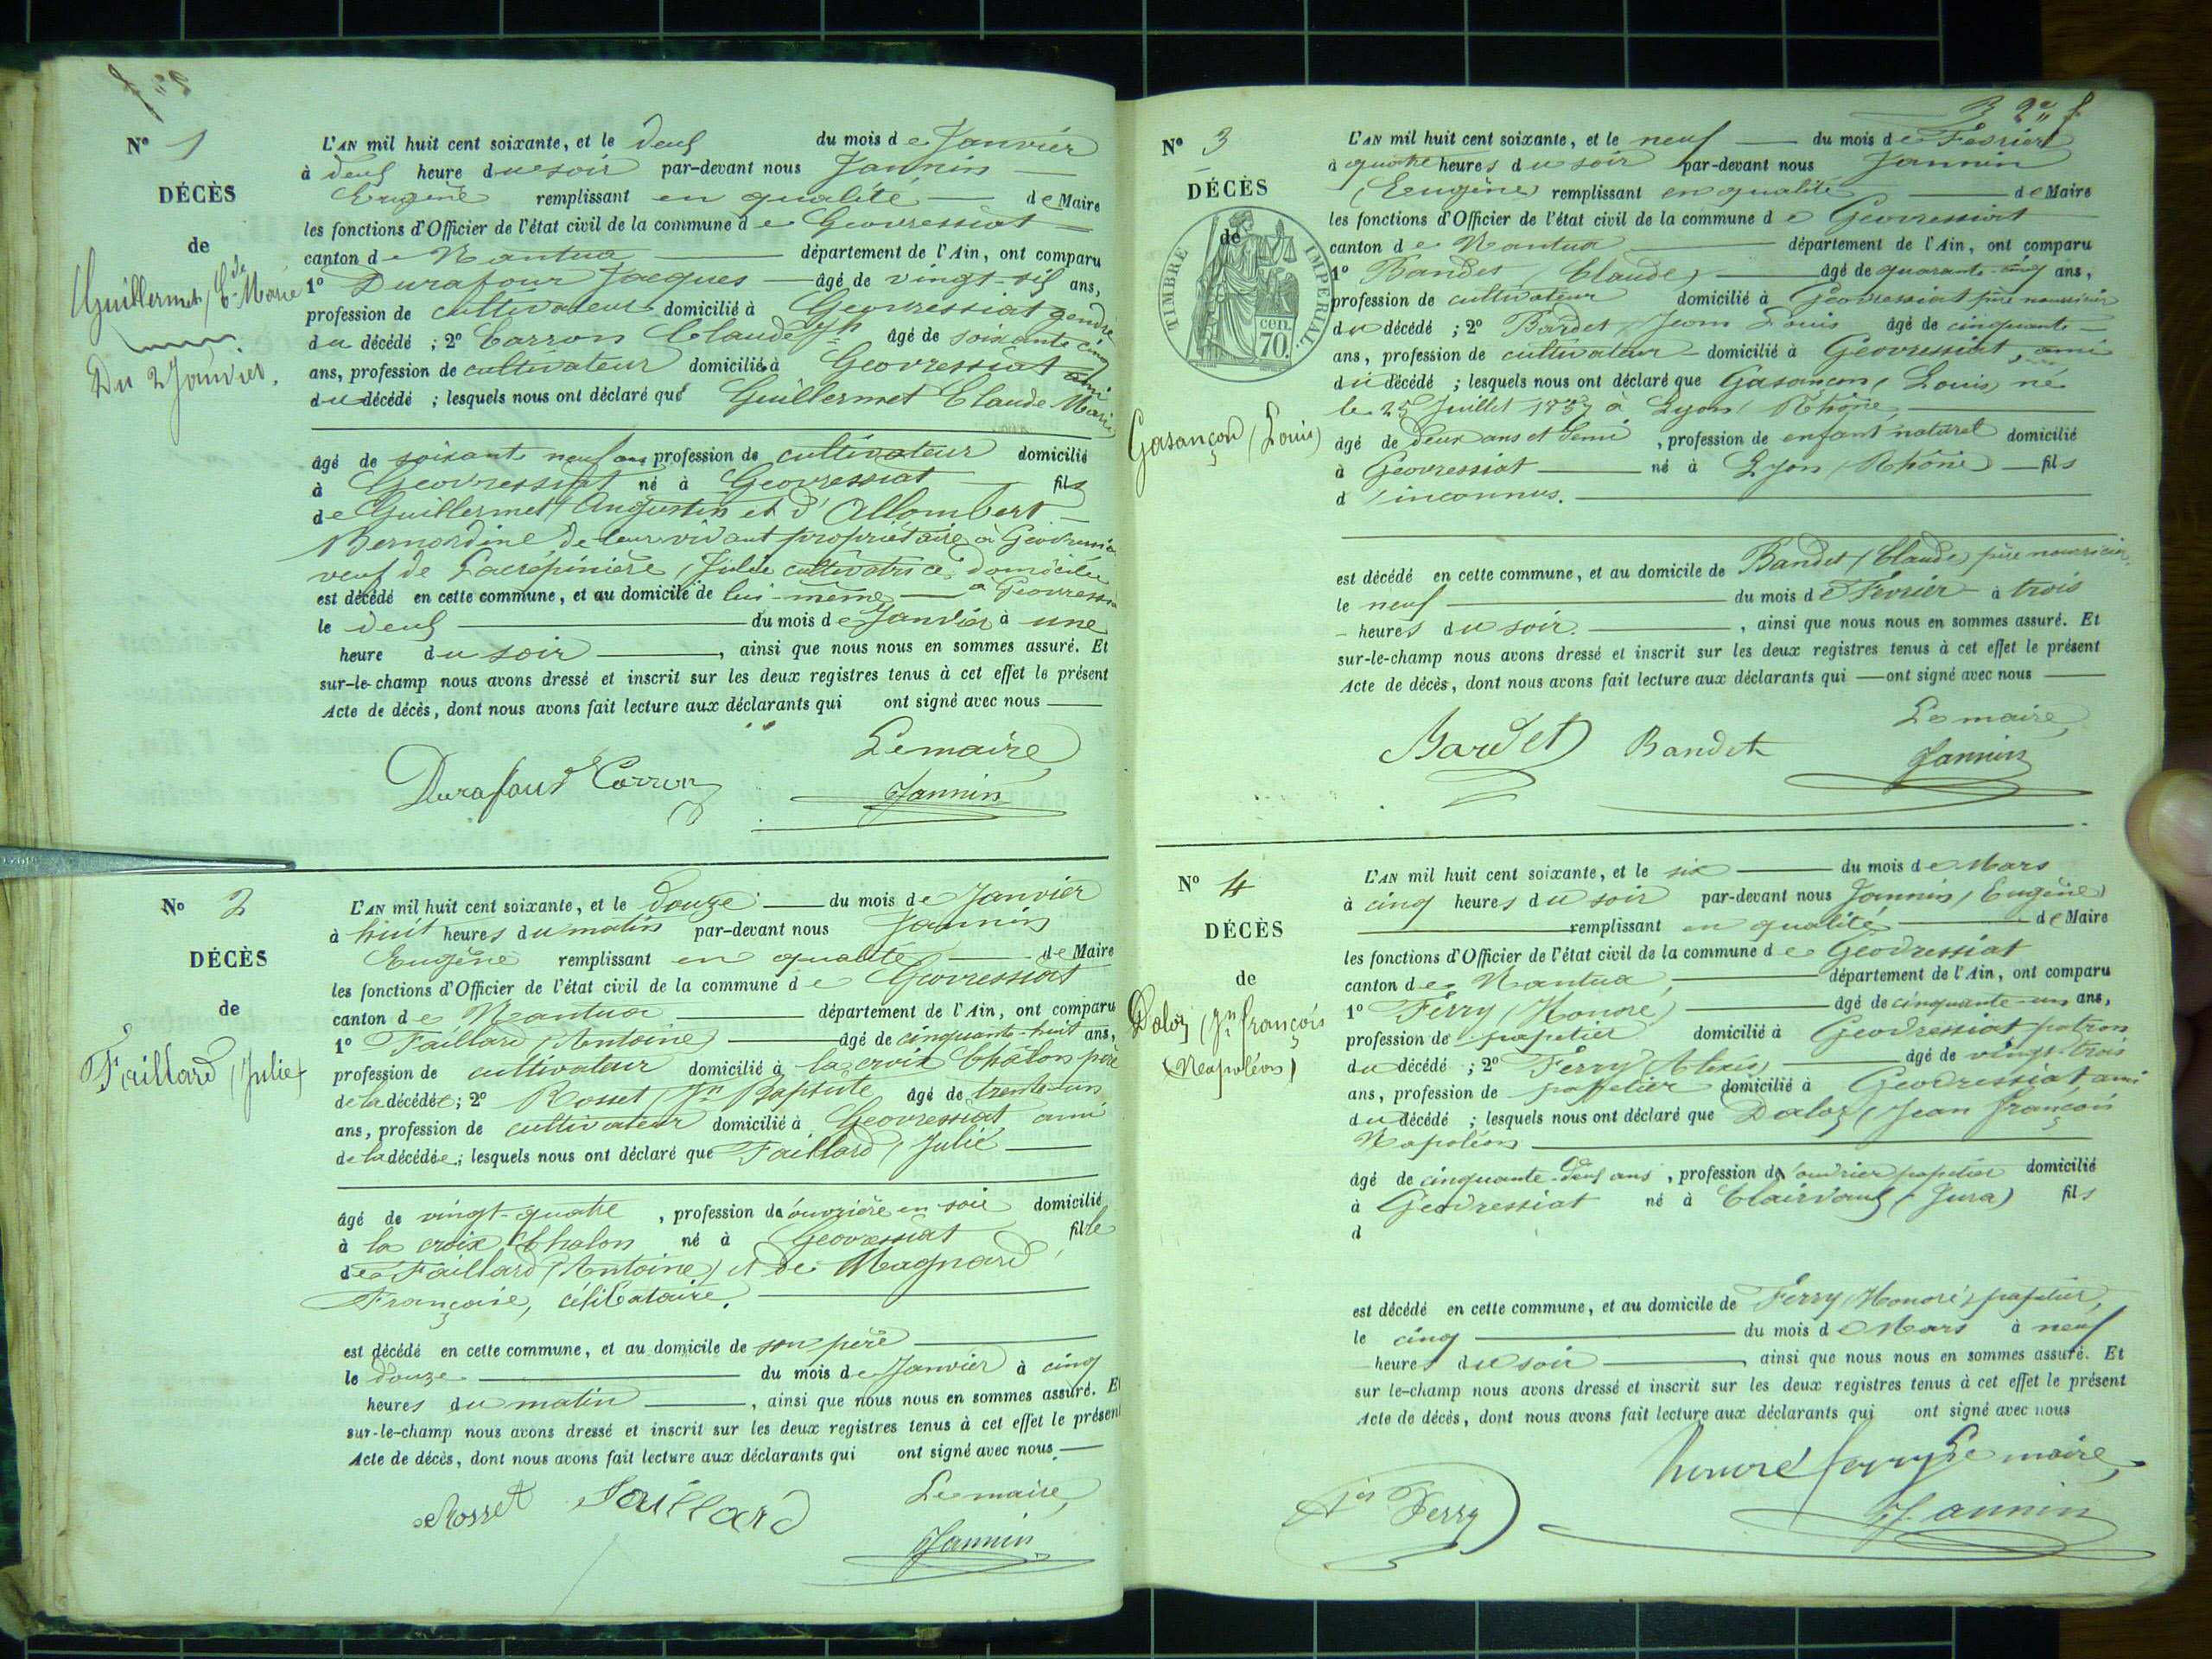 f 2
N° 1
DÉCÈS
de
Guillermet, Cde Marie
Du 2 Janvier.
L'AN mil huit cent soixante, et le deux du mois de Janvier
à deux heure du soir par-devant nous Jannin
Eugène remplissant en qualité de Maire
les fonctions d'Officier de l'état civil de la commune de Geovressiat
canton de Nantua département de l'Ain, ont comparu
1° Durafour Jacques âgé de vingt-six ans,
profession de cultivateur domicilié à Geovressiat gendre
du décédé ; 2° Carron Claude Jh âgé de soixante cinq
ans, profession de cultivateur domicilié à Geovressiat ami
du décédé ; lesquels nous ont déclaré que Guillermet Claude Marie
âgé de soixante neuf ans profession de cultivateur domicilié
à Geovressiat né à Geovressiat fils
de Guillermet Augustin et d'Allombert
Bernardine de leur vivant propriétaire à Geovressia
veuf de Lacrépinière, Julie cultivatrice domiciliée
est décédé en cette commune, et au domicile de lui-même à Geovressia
le deux du mois de Janvier à une
heure du soir, ainsi que nous nous en sommes assuré. Et
sur-le-champ nous avons dressé et inscrit sur les deux registres tenus à cet effet le présent
Acte de décès, dont nous avons fait lecture aux déclarants qui ont signé avec nous
Le maire
Durafour Carron Jannin
N° 2
DÉCÈS
de
Faillard (Julie)
L'AN mil huit cent soixante, et le douze du mois de Janvier
à huit heures du matin par-devant nous Jannin
Eugène remplissant en qualité de Maire
les fonctions d'Officier de l'état civil de la commune de Geovressiat
canton de Nantua département de l'Ain, ont comparu
1° Faillard (Antoine) âgé de cinquante-huit ans,
profession de cultivateur domicilié à la croix Châlon père
de la décédée; 2° Rosset (Jn Baptiste âgé de trente-un
ans, profession de cultivateur domicilié à Geovressiat ami
de la décédée; lesquels nous ont déclaré que Faillard (Julie
âgé de vingt-quatre, profession de ouvrière en soie domicilié
à la croix Chalon né à Geovressiat fille
de Faillard (Antoine) et de Magnard
Françoise, célibataire.
est décédé en cette commune, et au domicile de son père
le douze du mois de Janvier à cinq
heures du matin, ainsi que nous nous en sommes assuré. Et
sur-le-champ nous avons dressé et inscrit sur les deux registres tenus à cet effet le présent
Acte de décès, dont nous avons fait lecture aux déclarants qui ont signé avec nous
Le maire,
Rosset Faillard
Jannin
3 2e f
N° 3
DÉCÈS
de
TIMBRE IMPÉRIAL.
70. cen.
Gasançon (Louis)
L'AN mil huit cent soixante, et le neuf du mois de Février
à quatre heures du soir par-devant nous Jannin
(Eugène) remplissant en qualité de Maire
les fonctions d'Officier de l'état civil de la commune de Geovressiat
canton de Nantua département de l'Ain, ont comparu
1° Bandet (Claude) âgé de quarante-cinq ans,
profession de cultivateur domicilié à Geovressiat père nourricier
du décédé ; 2° Bardet, Jean Louis âgé de cinquante
ans, profession de cultivateur domicilié à Geovressiat, ami
du décédé ; lesquels nous ont déclaré que Gasançon (Louis) né
le 25 Juillet 1857 à Lyon (Rhône)
âgé de deux ans et demi, profession de enfant naturel domicilié
à Geovressiat né à Lyon (Rhône) fils
d'inconnus.
est décédé en cette commune, et au domicile de Bandet (Claude) père nourricier
le neuf du mois de Février à trois
heures du soir., ainsi que nous nous en sommes assuré. Et
sur-le-champ nous avons dressé et inscrit sur les deux registres tenus à cet effet le présent
Acte de décès, dont nous avons fait lecture aux déclarants qui ont signé avec nous
Le maire
Bardet Bandet Jannin
N° 4
DÉCÈS
de
Daloz (Jn françois
(Napoléon)
L'AN mil huit cent soixante, et le six du mois de Mars
à cinq heures du soir par-devant nous Jannin (Eugène)
remplissant en qualité de Maire
les fonctions d'Officier de l'état civil de la commune de Geovressiat
canton de Nantua, département de l'Ain, ont comparu
1° Ferry (Honoré) âgé de cinquante-un ans,
profession de papetier domicilié à Geovressiat patron
du décédé ; 2° Ferry (Alexis) âgé de vingt-trois
ans, profession de papetier domicilié à Geovressiat ami
du décédé ; lesquels nous ont déclaré que Daloz (Jean françois
Napoléon
âgé de cinquante-deux ans, profession de ouvrier papetier domicilié
à Geovressiat né à Clairvaux (Jura) fils
d
est décédé en cette commune, et au domicile de Ferry (Honoré) papetier,
le cinq du mois de Mars à neuf
heures du soir, ainsi que nous nous en sommes assuré. Et
sur le-champ nous avons dressé et inscrit sur les deux registres tenus à cet effet le présent
Acte de décès, dont nous avons fait lecture aux déclarants qui ont signé avec nous
honoré ferry Le maire,
Ais Ferry Jannin